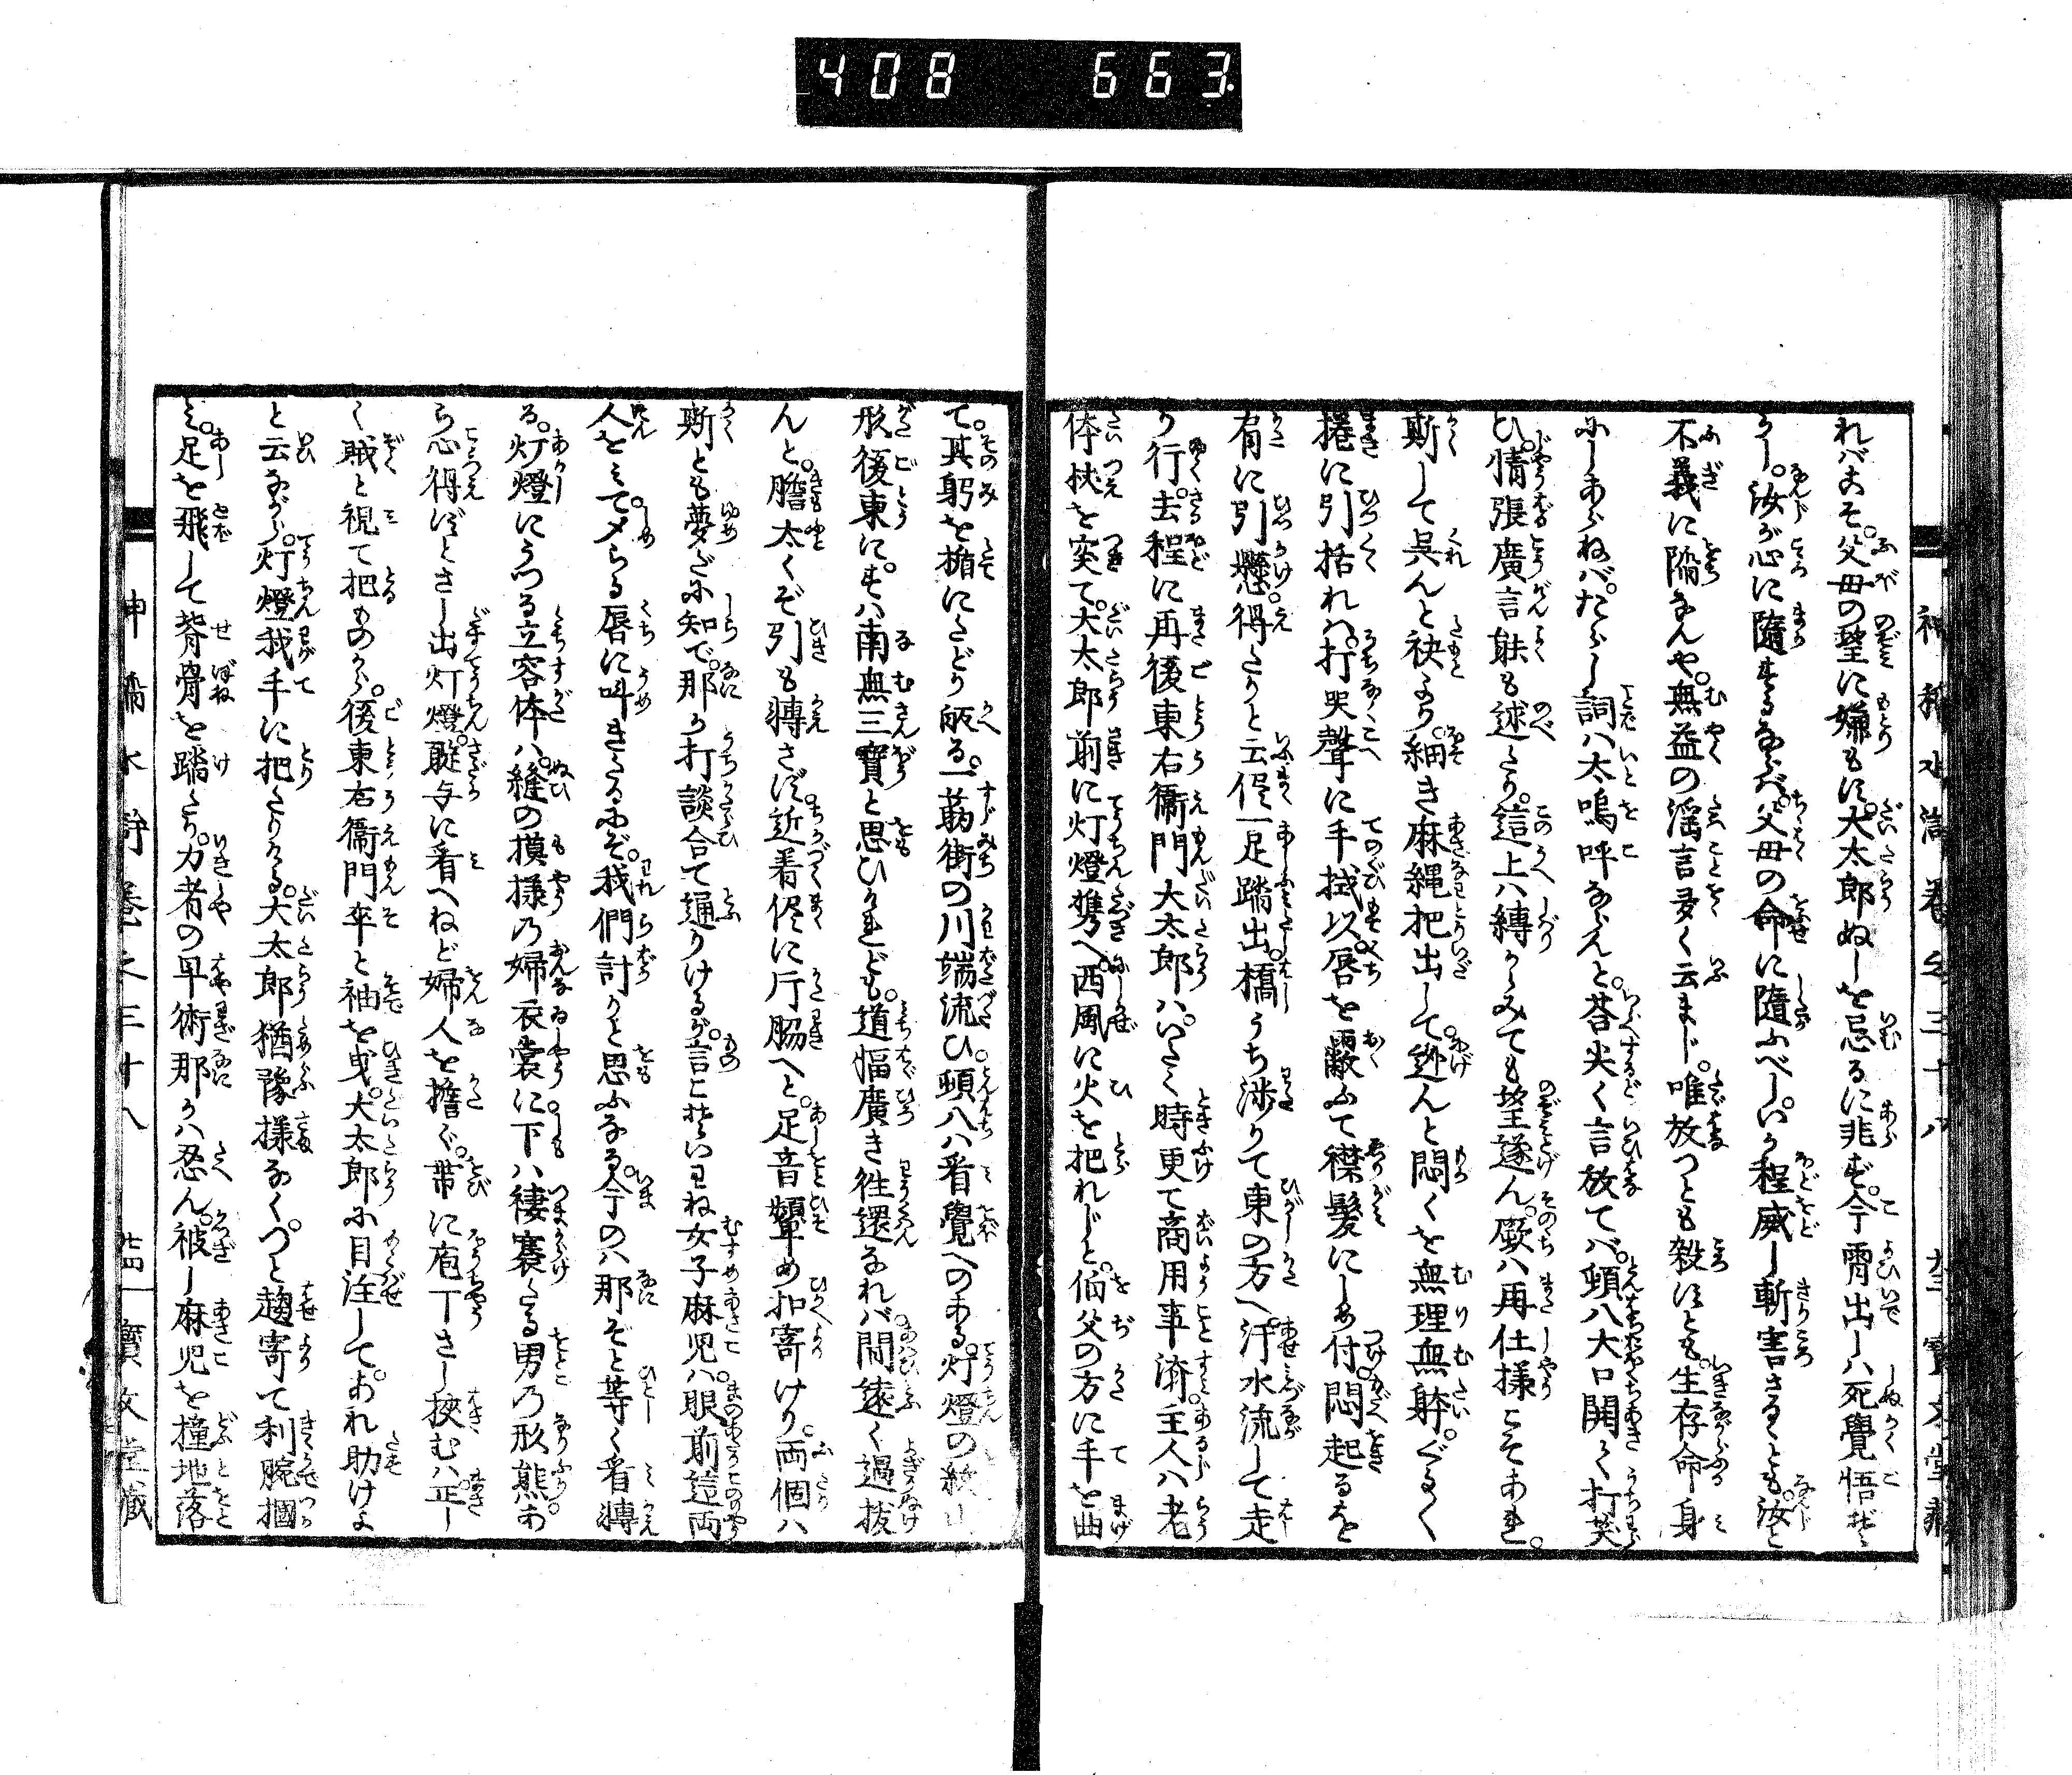 408 663
神稲水滸巻之三十八 廿三 寳文堂藏
れバこそ。父母の望に嫌もに。大太郎ぬしを忌るに非ず。今宵出しハ死覺悟ぞ
かし。汝が心に隨するならバ。父母の命に隨ふべし。いか程威し斬害さるゝとも。汝と
不義に陥なんや。無益の滛言多く云まじ。唯放つとも殺すとも。生存命身
にしあらねバ。たゞし詞ハ太嗚呼ならんと。荅尖く言放てバ。頓八大口開く打笑
ひ。情張廣言能も述たり。這上ハ縛からみても望遂ん。厥ハ再仕様こそあれ。
斯して呉んと袂より。細き麻縄把出して。迯んと悶くを無理無躰。ぐるく
捲に引括れハ。打哭聲に手拭以。唇を覆ふて襟髪にしめ付。悶起るを
肩に引懸。得たりと云侭一足踏出。橋うち渉りて東の方へ。汗水流して走
り行。去程に再後東右衞門大太郎ハ。いたく時更て商用事済。主人ハ老
体杖を突て。大太郎前に灯燈携へ。西風に火を把れじと。伯父の方に手を曲
て。其躬を楯にたどり皈る。一筋街の川端流ひ。頓八ハ看覺へのある。灯燈の紋
形後東に。すハ南無三寳と思ひけれども。道幅廣き徃還なれバ。間遠く過抜
んと。膽太くぞ引も轉さず。近着侭に片脇へと。足音顰め扣寄けり。両個ハ
斯とも夢だに知で。那か打談合て通りけるが。言こそいわね女子麻児ハ。眼前這両
人をミて。〆らる唇に叫きたるにぞ。我們計かと思ふなる。今のハ那ぞと等く看轉
る。灯燈にうつる立容体ハ。縫の摸様の婦衣裳に。下ハ褄褰たる男の形熊。あ
ち心得ずとさし出灯燈。聢与に看へねど婦人を擔ぐ。帯に庖丁さし挾むハ。正し
く賊と視て把ものから。後東右衞門卒と袖を曳。大太郎に目注して。あれ助けよ
と云ながら。灯燈我手に把たりける。大太郎猶豫様なく。つと趨寄て利腕摑
ミ。足を飛して脊骨を踏たり。力者の早術那かハ忍ん。被し麻児を撞地落
神稲水滸巻之三十八 廿四 寳文堂藏